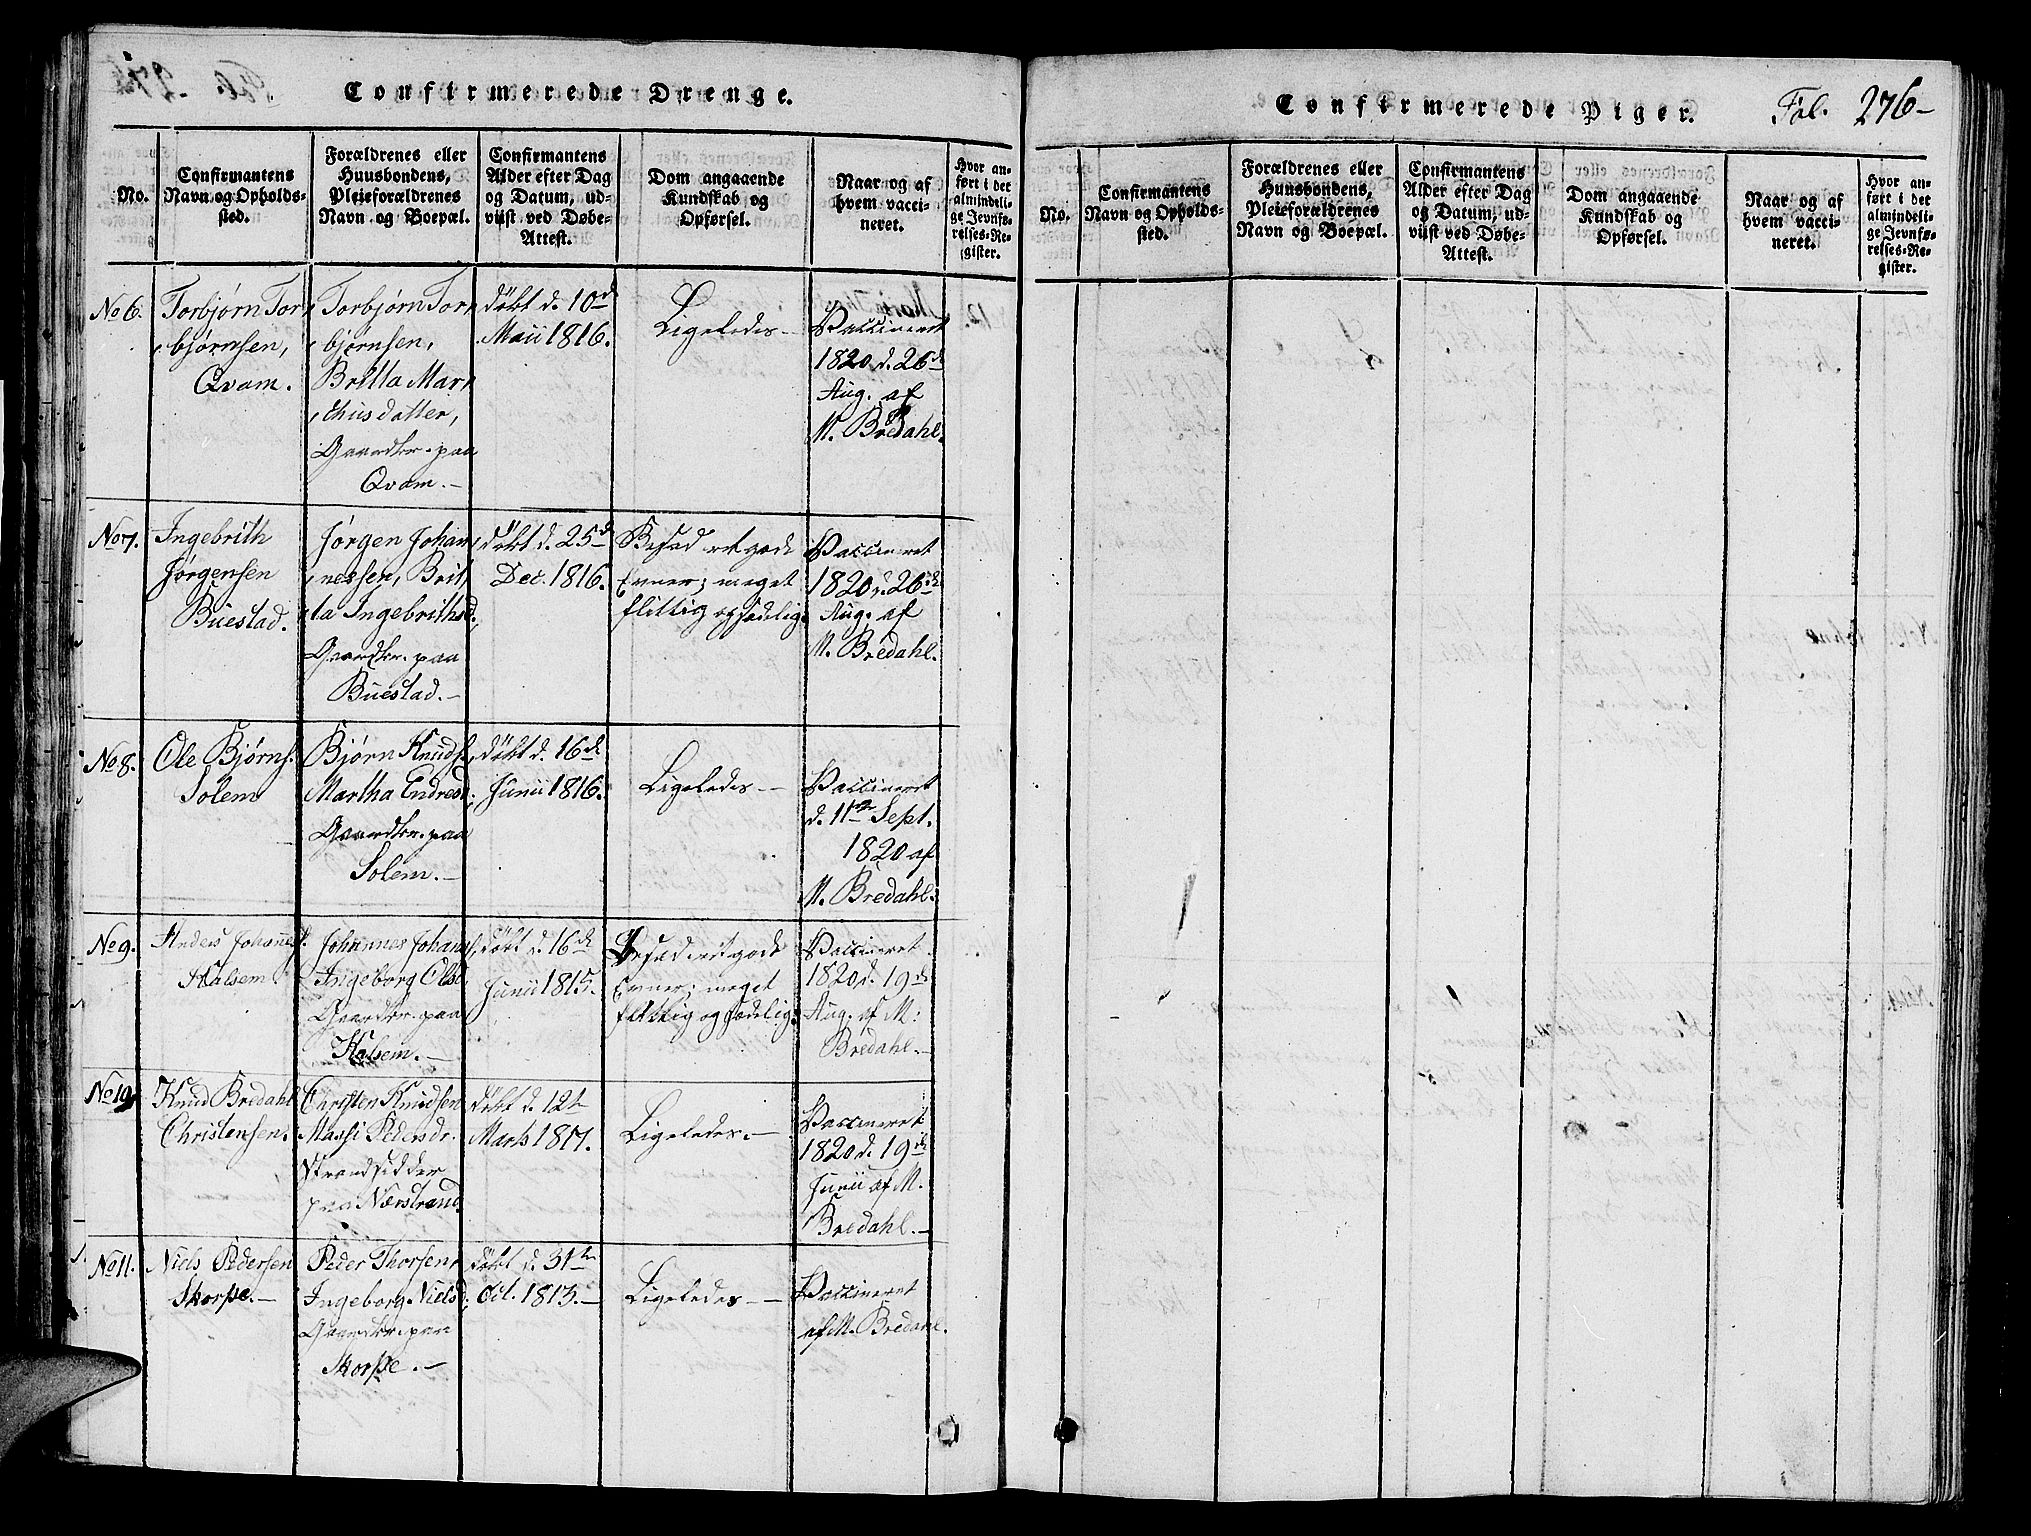 Confirmerede Drenge.
No.
Confirmantens
Navn og Opholds-
sted.
Forældrenes eller
Huusbondens,
Pleieforældrenes
Navn og Boepæl.
Confirmantens
Alder efter Dag
og Datum, ud-
viist ved Døbe-
Attest.
Dom angaaende
Kundskab og
Opførsel.
Naar og af
hvem vacci-
neret.
Hvor an-
ført i det
almindeli-
ge Jevnfø-
relses-Re-
gister.
No 6.
Torbjørn Tor-
bjørnsen,
Qvam.
Torbjørn Tor-
bjørnsen,
Britta Mar-
thusdatter,
Gaardbr. paa
Qvam.-
døbt d. 10d
Maii 1816.
Ligeledes-
Vaccineret
1820 d. 26d
Aug. af
M. Bredahl.
No 7.
Ingebrith
Jørgensen
Buestad.
Jørgen Johan-
nessen, Brit-
ta Ingebrithsd.,
Gaardbr. paa
Buestad.-
døbt d. 25d
Dec. 1816.
Besad ret gode
Evner; meget
flittig og sædelig.
Vaccineret
1820 d. 26d
Aug. af
M. Bredahl.
No 8.
Ole Bjørns.
Solem
Bjørn Knuds.,
Martha Endresd.,
Gaardbr. paa
Solem.-
døbt d. 16d
Junii 1816.
Ligeledes-
Vaccineret
d. 11te Sept.
1820 af
M. Bredahl.
No 9.
Anders Johannes.
Halsem
Johannes Johans.,
Ingeborg Olsd.
Gaardbr. paa
Halsem.-
døbt d. 16d
Junii 1815.
Besad ret gode
Evner; meget
flittig og sædelig.
Vaccineret
1820 d. 19d
Aug. af M.
Bredahl.-
No 10.
Knud Bredahl
Christensen.
Christen Knudsen
Massi Pedersdr.
Strandsidder
paa Nærstrand.
døbt d. 12t
Marts 1817.
Ligeledes.-
Vaccineret
1820 d. 19d
Junii af M.
Bredahl.-
No 11.
Niels Pedersen
Skorpe.-
Peder Thorsen,
Ingeborg Nielsd.,
Gaardbr. paa
Skorpe.-
døbt d. 31te
Oct. 1813.-
Ligeledes-
Vaccineret
af M. Bredahl.
Confirmerede Piger.
Fol. 276-
No.
Confirmantens
Navn og Opholds-
sted.
Forældrenes eller
Huusbondens,
Pleieforældrenes
Navn og Boepæl.
Confirmantens
Alder efter Dag
og Datum, ud-
viist ved Døbe-
Attest.
Dom angaaende
Kundskab og
Opførsel.
Naar og af
hvem vacci-
neret.
Hvor an-
ført i det
almindeli-
ge Jevnfø-
relses-Re-
gister.